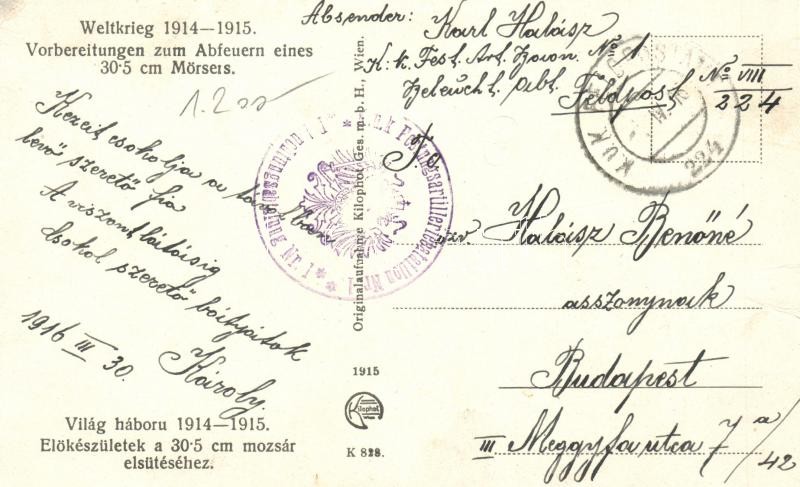 Weltkrieg 1914—1915.
Vorbereitungen zum Abfeuern eines
30·5 cm Mörsers.
1.200
Kezeit csokolja a távolban
levő szerető fia
A viszontlátásig
csokol szerető bátyátok
Károly.
1916 III 30.
Világ háboru 1914—1915.
Elökészületek a 30·5 cm mozsár
elsütéséhez.
Originalaufnahme Kilophot Ges. m. b. H., Wien.
1915
Kilophot
K 828.
K.u.K. Festungsartilleriebataillon Nr. 1
Absender: Karl Halász
K. k. Fest. Art. Baon. No 1
Beleucht. Abt.
Feldpost No VIII
224
K.u.K. FELDPOSTAMT
224
T. c.
özv. Halász Benőné
asszonynak
Budapest
III Meggyfa utca 7 a/42